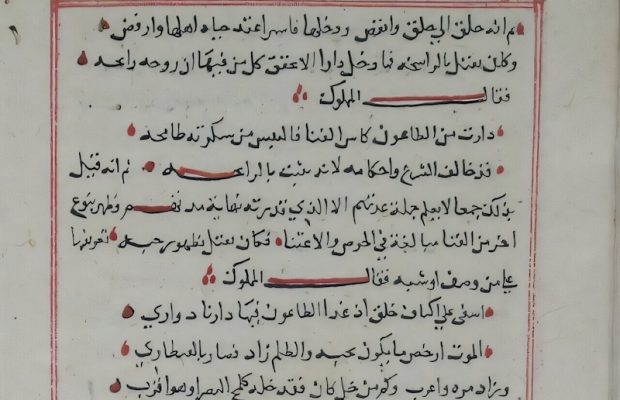 ثم انه حلق الي حلق وانغض ودخلها فاسرا عند جباه اهلها وارفض
وكان يقتل بالرائحه فما دخل دارا الا عبق كل من فيها ان روحه رائحه
فقال المملوك
دارت من الطاعون كاس الفنا فالنفس من سكرته طافحه
قد خالف الشرع واحكامه لانه يثبت بالرائحه ثم انه قتل
بذلك جمعا لا يعلم جملة عدتهم الا الذي قدر وظهر بنوع
اخر من الفنا مبالغة في الحرص والاعتنا فكان يقتل بظهور حبه
علي من وصف او شبه فقال المملوك
اسفي علي اكناف حلق اذ غدا الطاعون فيها ذا زناد واري
الموت ارخص ما يكون بحبه والظلم زاد فصار بالقنطاري
وزاد مره واعرب وكم من حل كان فقد خله كلمح البصر او هو اقرب